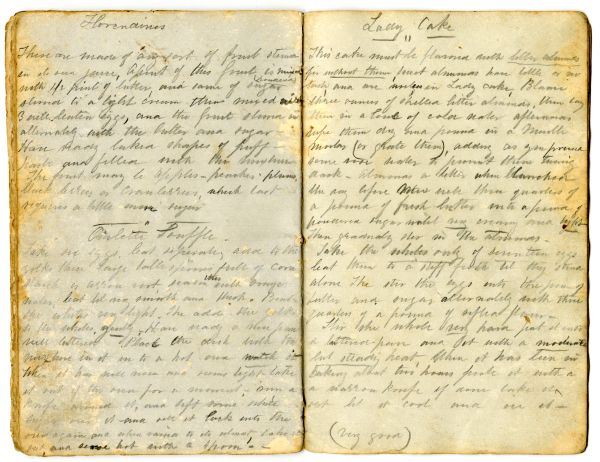 Florendines
These are made of any sort of fruit stewed
in its own juice, a pint of this fruit is mixed
with 1/2 pint of butter, and same of sugar
stirred to a light cream then mixed with
3 well beaten eggs, and the fruit stirred in
alternately with the butter and sugar
Have ready baked shapes of puff
paste and filled with this mixture
The fruit may be apples - peaches - plums,
berries or Cranberries, which last
requires a little more sugar
Souffle.
Take six Eggs, beat separate, add to the
yolks three large table spoons full of corn
starch or arrow root, season with orange
water, beat till smooth and thick. Beat
the whites light, then add the yolks
to the whites, gently. Have ready a tin pan
well buttered. Place the dish with the
mixture in it in to a hot oven watch it
when it has well risen and seems light take
it out of the oven for a moment, run a
knife around it, and sift some white
sugar over it and set it back into the
oven again and when raised to its utmost take it
out and serve hot with a spoon. -
Lady Cake
This cake must be flavored with bitter almonds
for without them sweet almonds have little or no
taste and are useless in Lady cake, Blanch
three ounces of shelled bitter almonds, then lay
them in a bowl of cold water afterwards
wipe them dry and pound in a Marble
mortar (or grate them), adding as you pound
some rose water to prevent them turning
dark - almonds are better when blanched
the day before. Mix with three quarters of
a pound of fresh butter into a pound of
powdered sugar until very creamy and light
then gradually stir in the almonds -
Take the whites only of seventeen eggs
beat them to a stiff froth till they stand
alone Then stir the eggs into the pan of
butter and sugar alternately with three
quarters of a pound of sifted flour -
Stir the whole very hard put it into
a buttered pan and set with a moderate
but steady heat When it has been in
baking about two hours probe it with a
a narrow knife if done take it
out let it cool and ice it -
(Very good)